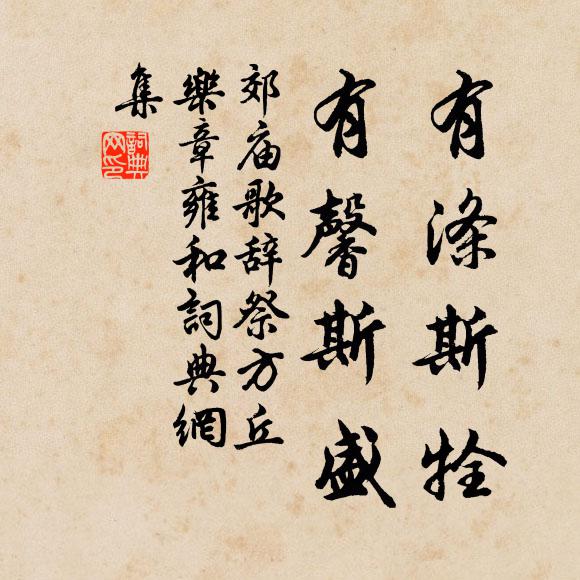 有涤斯牷
有馨斯盛
郊庙歌辞祭方丘
樂章雍和詞典網
集
詞典网印